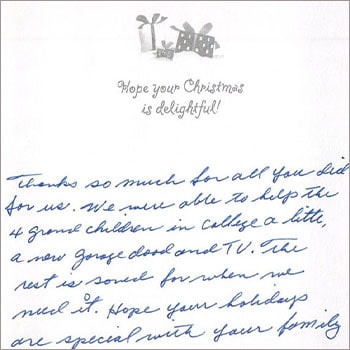 Hope your Christmas
is delightful!
Thanks so much for all you did
for us. We were able to help the
4 grand children in college a little,
a new garage dood and TV. The
rest is saved for when we
need it. Hope your holidays
are special with your family